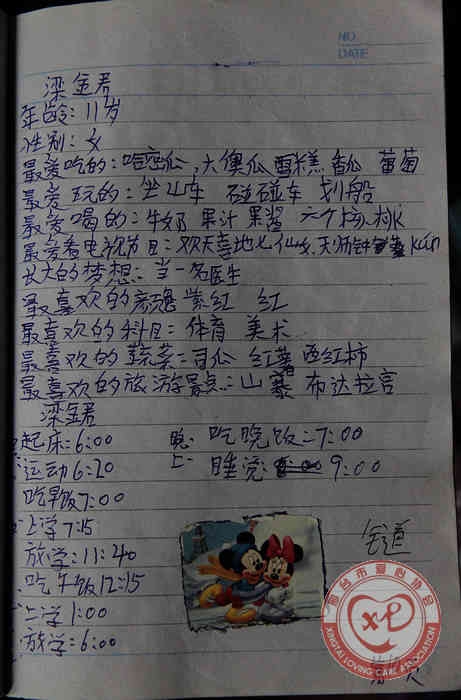 NO.
DATE
梁金君
年龄：11岁
性别：女
最爱吃的：哈密瓜，大傻瓜 雪糕 香瓜 葡萄
最爱玩的：坐山车 碰碰车 划船
最爱喝的：牛奶 果汁 果酱 六个核桃
最爱看电视节目：欢天喜地七仙女,
长大的梦想：当一名医生
最喜欢的颜色 紫红 红
最喜欢的科目：体育 美术
最喜欢的蔬菜：瓜 红薯 西红柿
最喜欢的旅游景点：山 布达拉宫
梁金君
起床：6:00
运动6:20
吃早饭7:00
上学7:15
放学：11:40
吃午饭12:15
上学1:00
放学：6:00
晚上 吃晚饭：7:00
睡觉：9:00
邢台市爱心协会
XINGTAI LOVING CARE ASSOCIATION